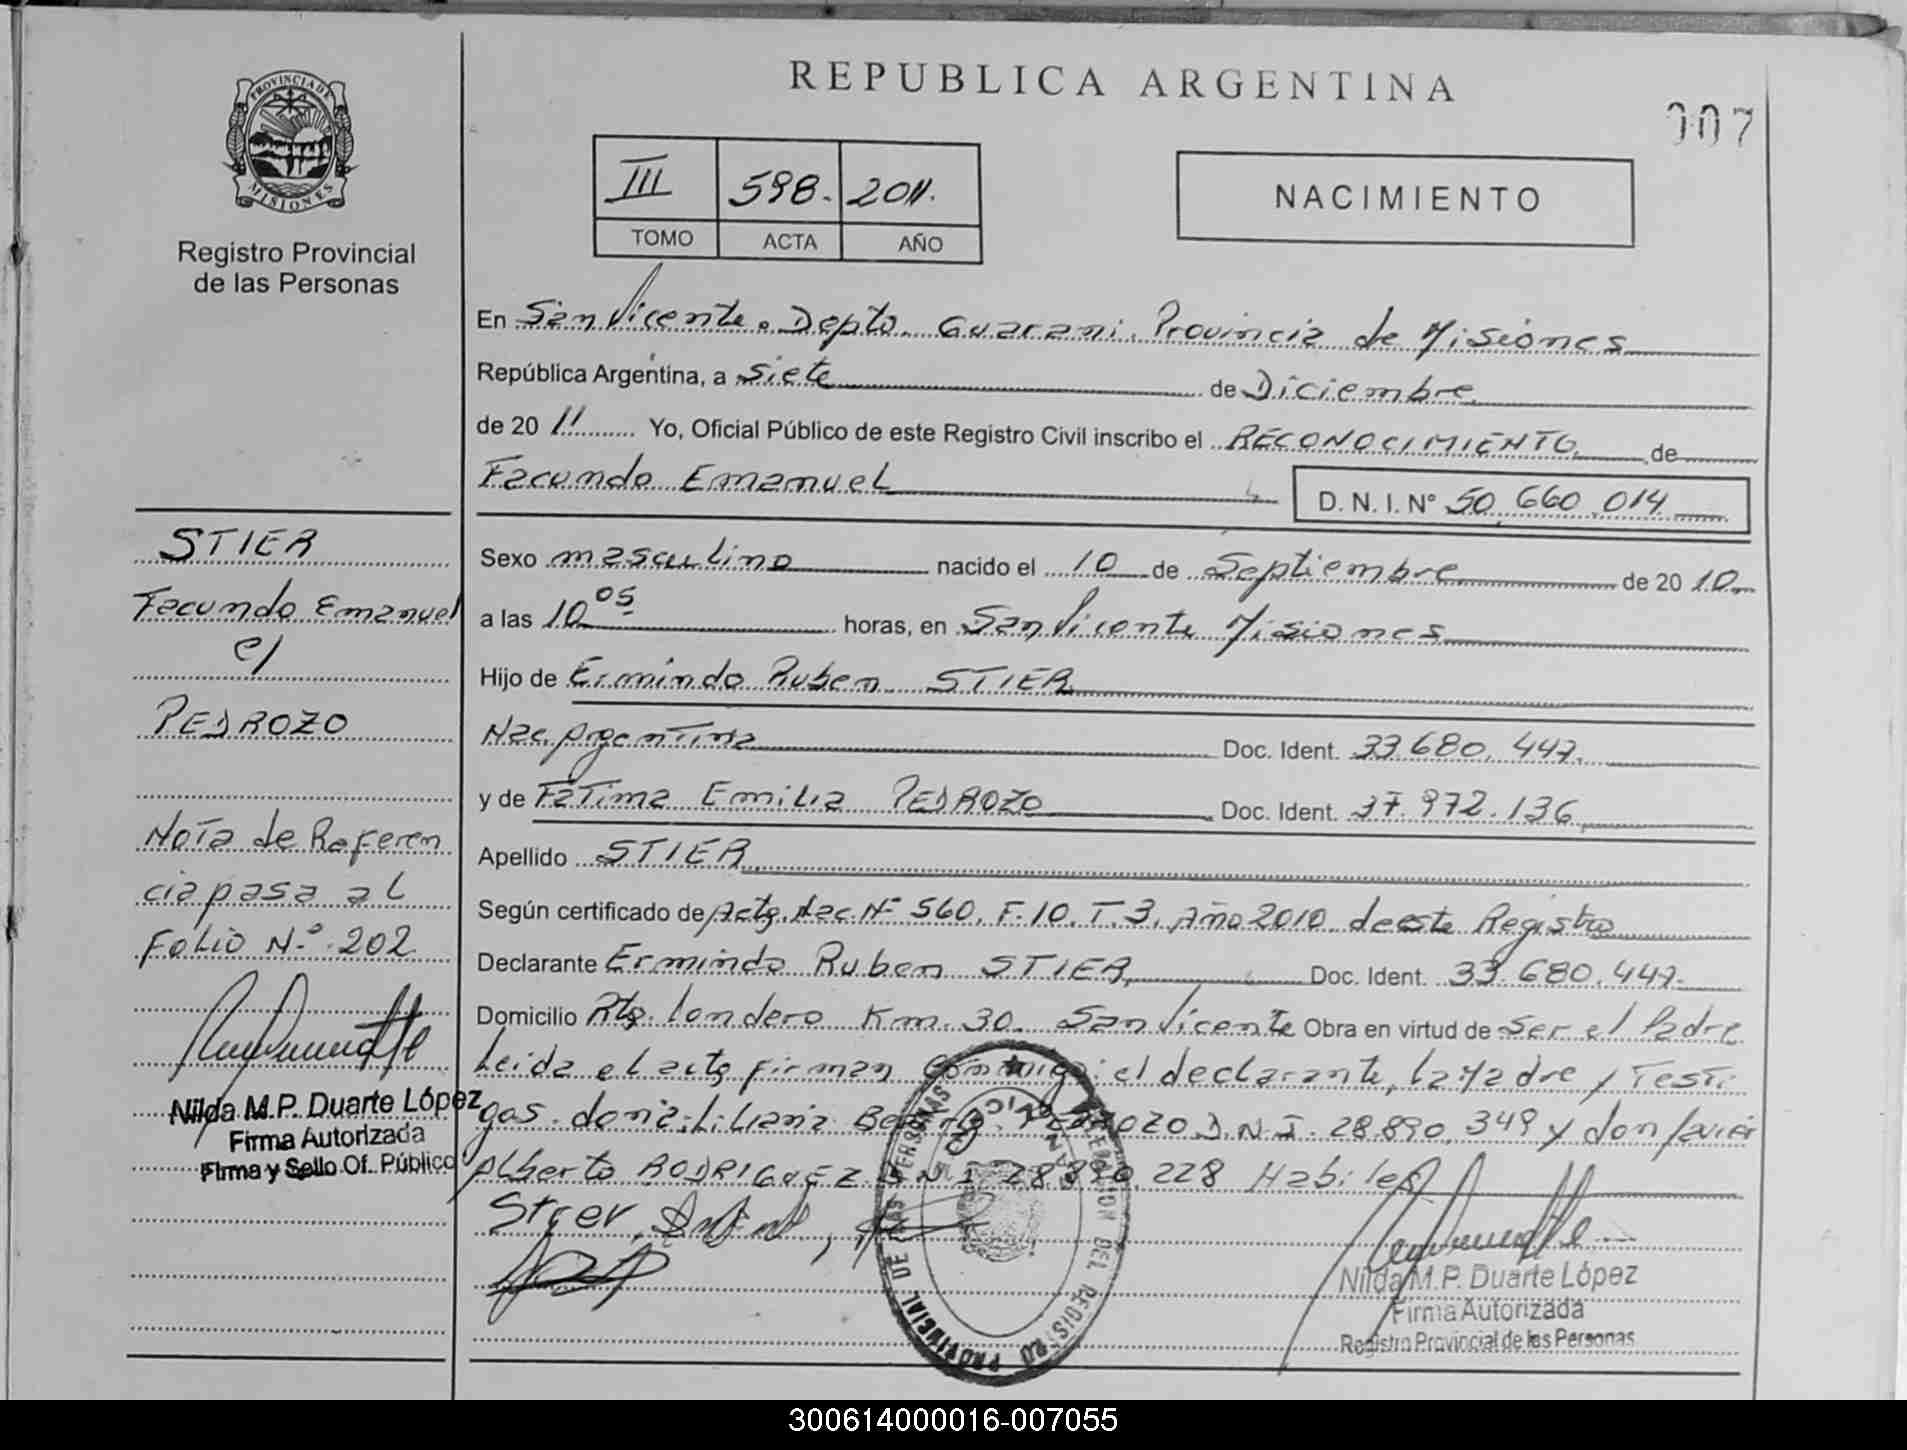 PROVINCIA DE
MISIONES
Registro Provincial
de las Personas
REPUBLICA ARGENTINA
007
III 598. 2011.
TOMO ACTA AÑO
NACIMIENTO
En San Vicente. Depto. Guarani. Provincia de Misiones
República Argentina, a Siete de Diciembre
de 20 11 Yo, Oficial Público de este Registro Civil inscribo el RECONOCIMIENTO de
Facundo Emanuel
D. N. I. Nº 50.660.014
Sexo masculino nacido el 10 de Septiembre de 20 10
a las 10 05 horas, en San Vicente Misiones
Hijo de Ermindo Ruben STIER
Nac. Argentina Doc. Ident. 33.680.447.
y de Fatima Emilia PEDROZO Doc. Ident. 37.972.136
Apellido STIER
Según certificado de Acta. Nac. Nº 560. F. 10. T. 3. Año 2010 de este Registro
Declarante Ermindo Ruben STIER Doc. Ident. 33.680.447.
Domicilio Rta. londero Km. 30. San Vicente Obra en virtud de Ser el Padre
Leida el acta firman conmigo: el declarante, la Madre y Testi
gos. doña: Liliana PEDROZO D.N.I. 28.890.349 y don Javier
Alberto RODRIGUEZ D N I 28.890.228 Habiles
Stier
STIER
Facundo Emanuel
c/
PEDROZO
Nota de Referen
cia pasa al
Folio N.º 202
Nilda M.P. Duarte López
Firma Autorizada
Firma y Sello Of. Público
Nilda M.P. Duarte López
Firma Autorizada
Registro Provincial de las Personas
PROVINCIAL DE LAS PERSONAS
DELEGACION DEL REGISTRO
300614000016-007055